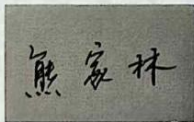 熊家林